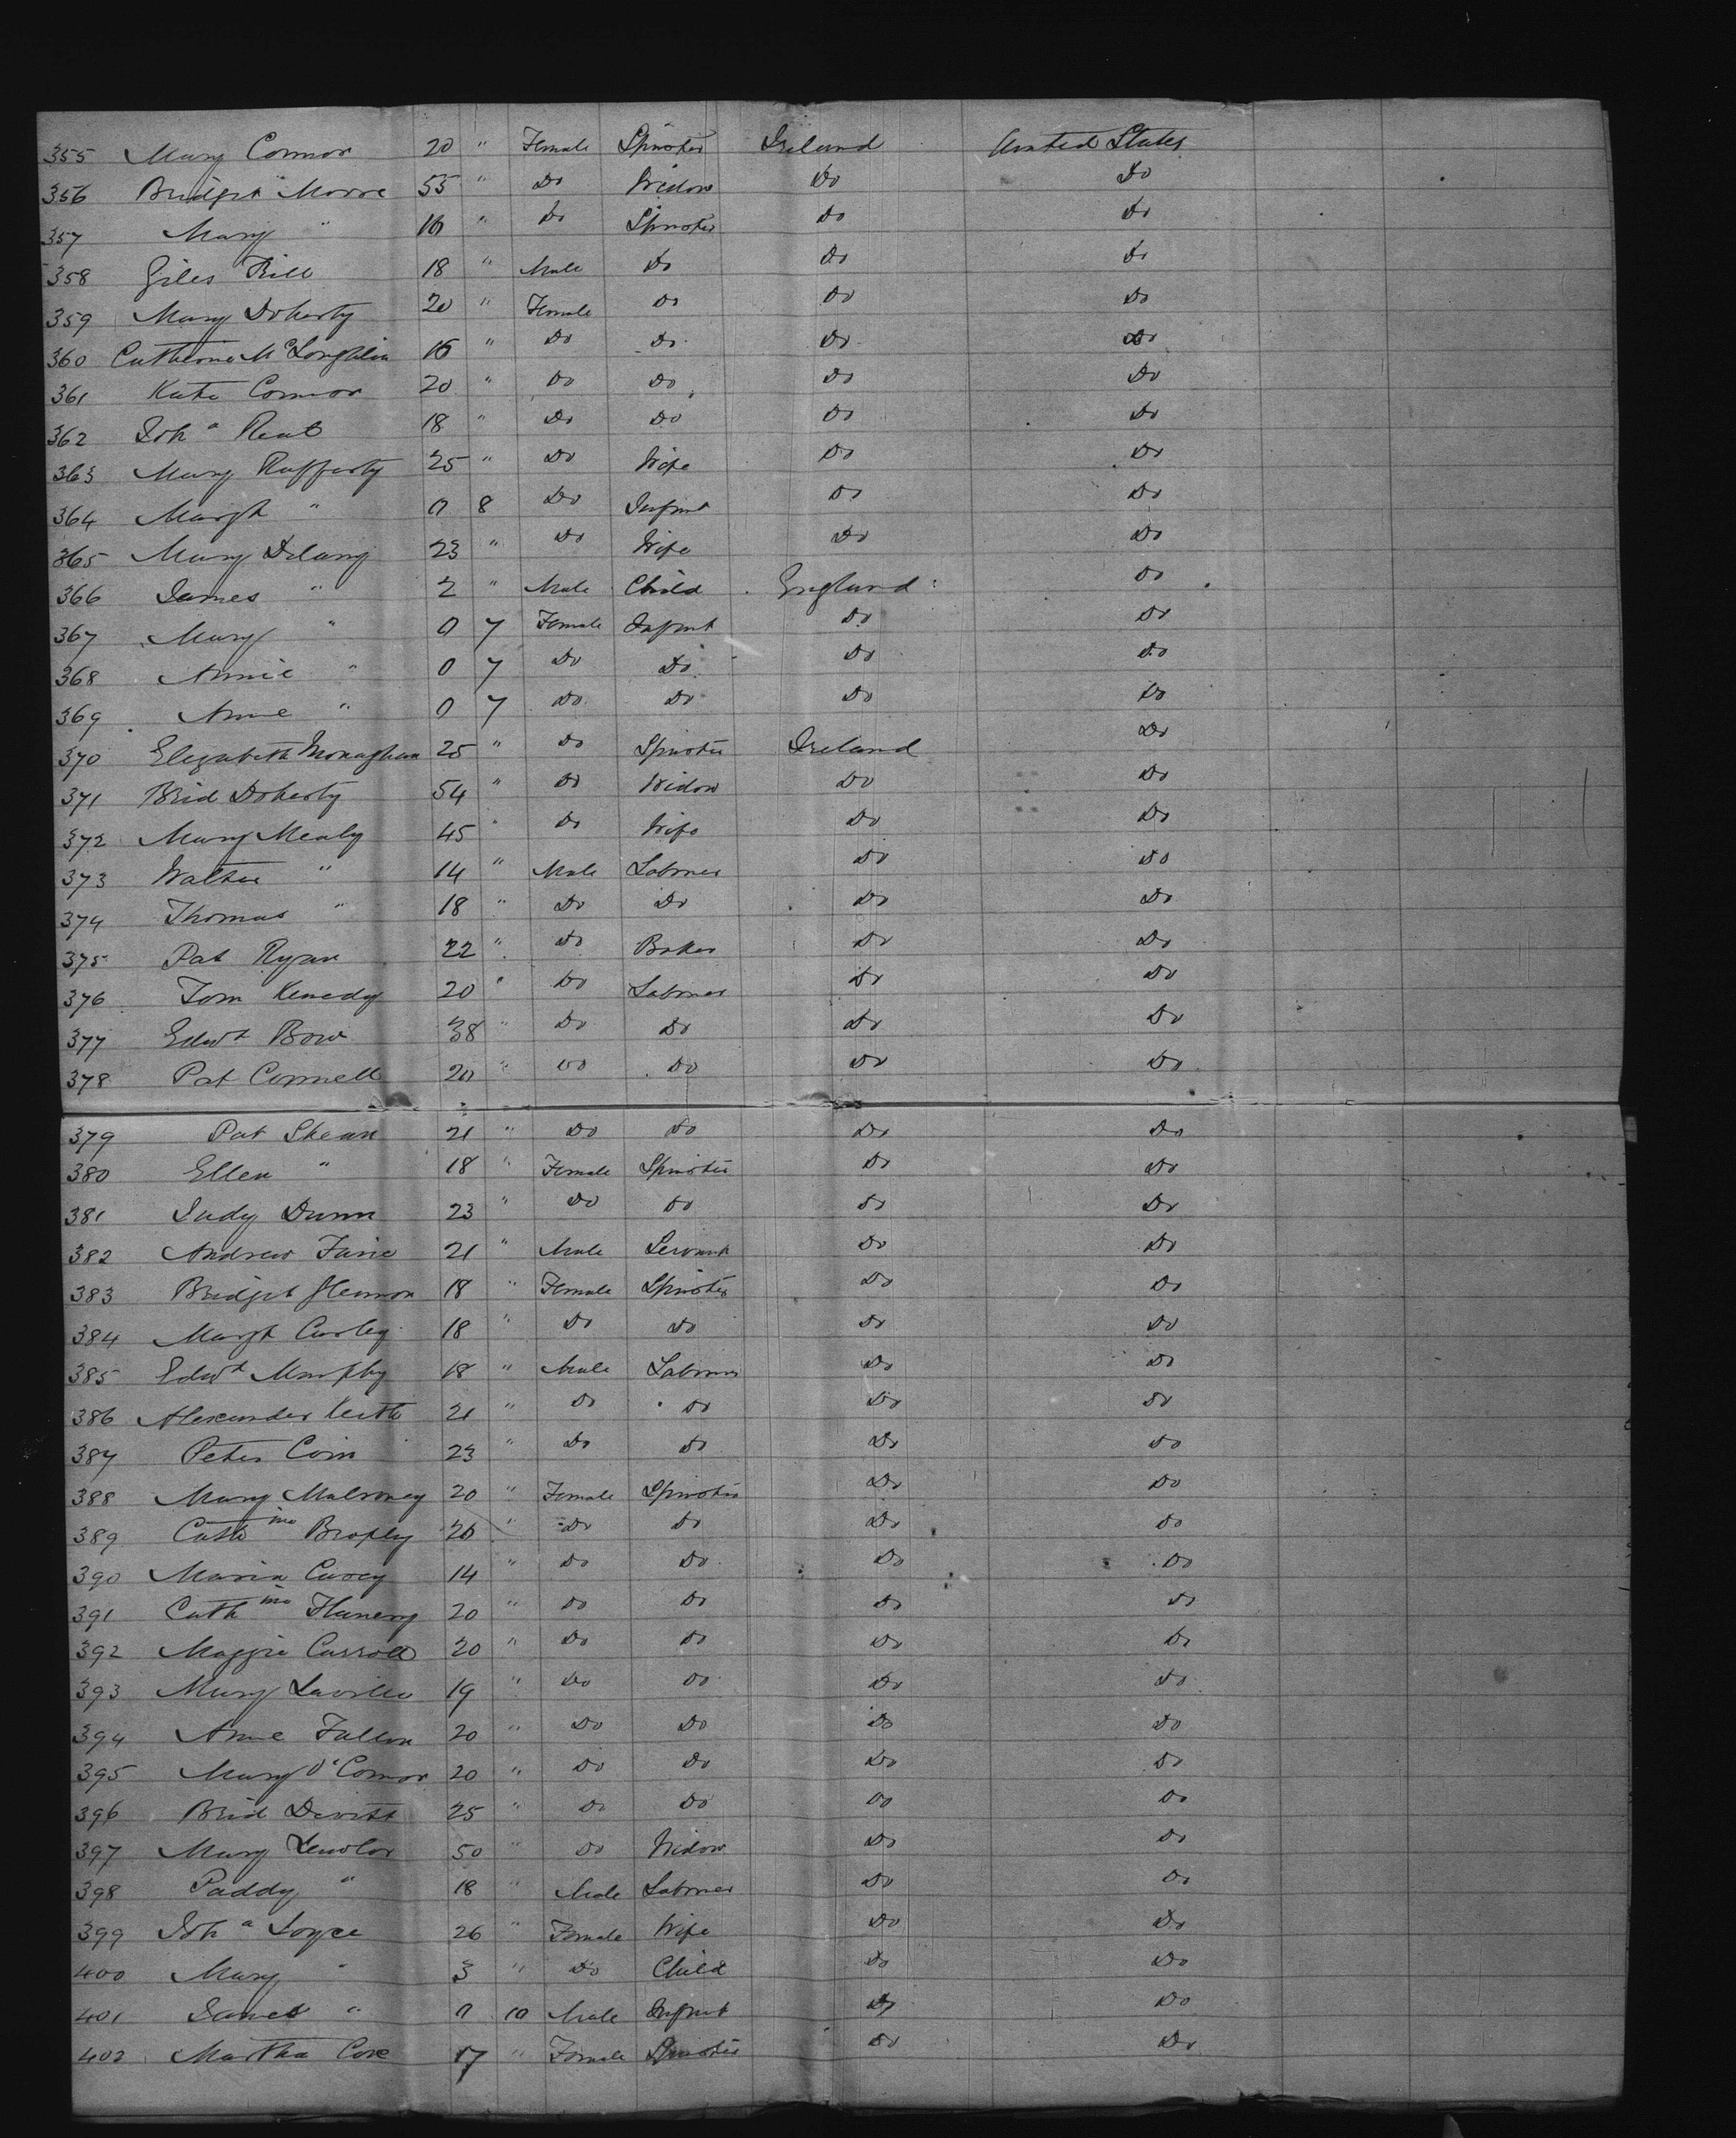 355 Mary Connor 20 " Female Spinster Ireland United States
356 Bridget Moore 55 " Do Widow Do Do
357 Mary " 16 " Do Spinster Do Do
358 Giles Bill 18 " Male Do Do Do
359 Mary Doherty 20 " Female Do Do Do
360 Catherine McLoughlin 16 " Do Do Do Do
361 Kate Connor 20 " Do Do Do Do
362 Joha 18 " Do Do Do Do
363 Mary Rafferty 25 " Do Wife Do Do
364 Margt " 0 8 Do Infant Do Do
365 Mary Delany 23 " Do Wife Do Do
366 James " 2 " Male Child England Do
367 Mary " 0 7 Female Infant Do Do
368 Annie " 0 7 Do Do Do Do
369 Anne " 0 7 Do Do Do Do
370 Elizabeth Monaghan 25 " Do Spinster Ireland Do
371 Brid Doherty 54 " Do Widow Do Do
372 Mary Mealy 45 " Do Wife Do Do
373 Walter " 14 " Male Labourer Do Do
374 Thomas " 18 " Do Do Do Do
375 Pat Ryan 22 " Do Baker Do Do
376 Tom Kenedy 20 " Do Labourer Do Do
377 Edwd Bow 38 " Do Do Do Do
378 Pat Connell 20 " Do Do Do Do
379 Pat Shean 21 " Do Do Do Do
380 Ellen " 18 " Female Spinster Do Do
381 Judy Dunn 23 " Do Do Do Do
382 Andrew 21 " Male Servant Do Do
383 Bridget Glennon 18 " Female Spinster Do Do
384 Margt Curley 18 " Do Do Do Do
385 Edwd Murphy 18 " Male Labourer Do Do
386 Alexander Keith 21 " Do Do Do Do
387 Peter Coin 23 " Do Do Do Do
388 Mary Mulroney 20 " Female Spinster Do Do
389 Cathine Brophy 20 " Do Do Do Do
390 Maria 14 " Do Do Do Do
391 Cathine Flanery 20 " Do Do Do Do
392 Maggie Carroll 20 " Do Do Do Do
393 Mary 19 " Do Do Do Do
394 Anne Fallon 20 " Do Do Do Do
395 Mary O'Connor 20 " Do Do Do Do
396 Brid Devitt 25 " Do Do Do Do
397 Mary Lawlor 50 " Do Widow Do Do
398 Paddy " 18 " Male Labourer Do Do
399 Joha Joyce 26 " Female Wife Do Do
400 Mary " 3 " Do Child Do Do
401 James " 0 10 Male Infant Do Do
402 Martha Coxe 17 " Female Spinster Do Do